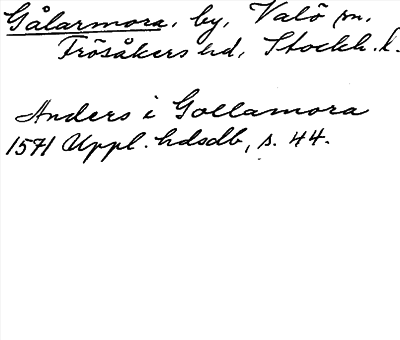 Gålarmora, by, Valö sn,
Frösåkers hd, Stockh. l.
Anders i Gollamora
1571 Uppl. hdsdb, s. 44.